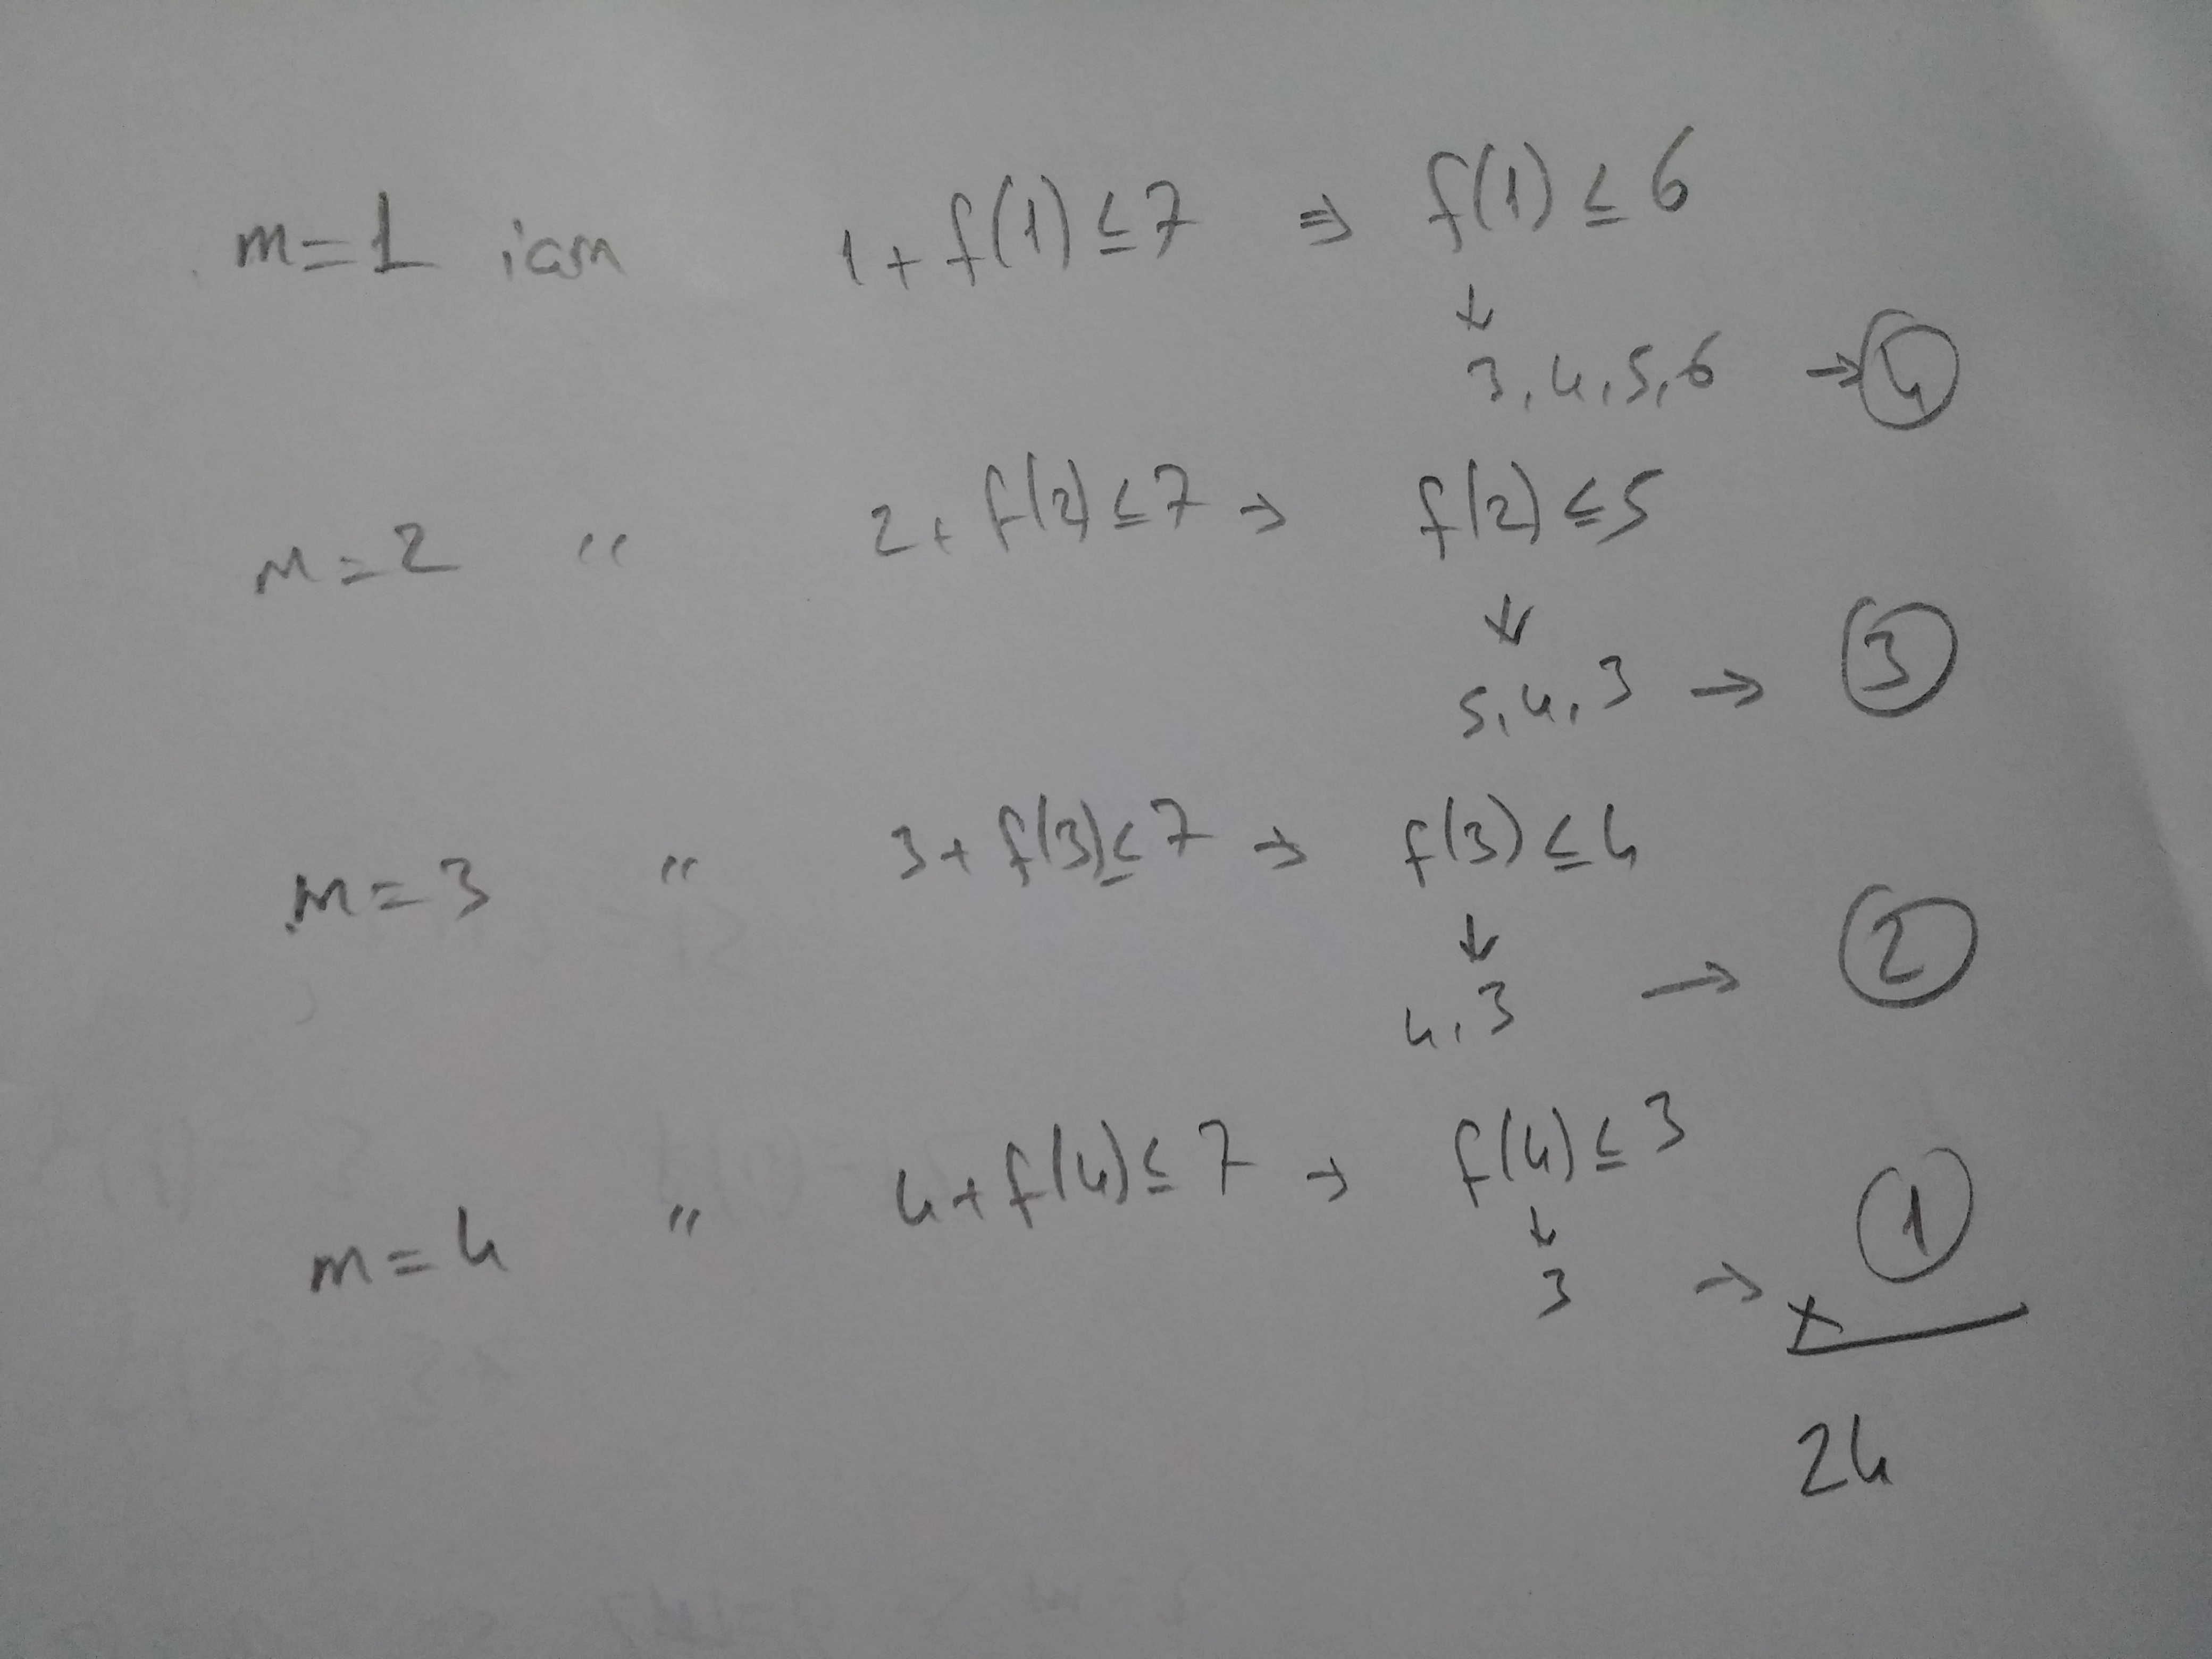 m=1 için 1+f(1)≤7 ⇒ f(1)≤6
↓
3,4,5,6 → 4
m=2 " 2+f(2)≤7 → f(2)≤5
↓
5,4,3 → 3
m=3 " 3+f(3)≤7 → f(3)≤4
↓
4,3 → 2
m=4 " 4+f(4)≤7 → f(4)≤3
↓
3 → 1
x
24